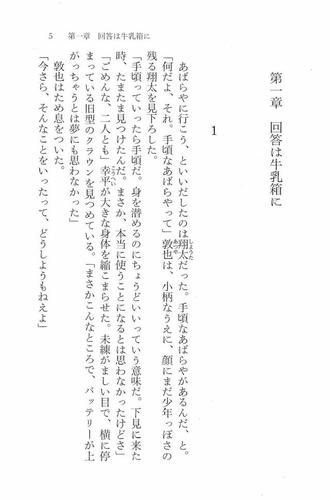 5　第一章　回答は牛乳箱に
第一章　回答は牛乳箱に
1
　あばらやに行こう、といいだしたのは翔太だった。手頃なあばらやがあるんだ、と。
「何だよ、それ。手頃なあばらやって」敦也は、小柄なうえに、顔にまだ少年っぽさの
残る翔太を見下ろした。
「手頃っていったら手頃だ。身を潜めるのにちょうどいいっていう意味だ。下見に来た
時、たまたま見つけたんだ。まさか、本当に使うことになるとは思わなかったけどさ」
「ごめんな、二人とも」幸平が大きな身体を縮こまらせた。未練がましい目で、横に停
まっている旧型のクラウンを見つめている。「まさかこんなところで、バッテリーが上
がっちゃうとは夢にも思わなかった」
　敦也はため息をついた。
「今さら、そんなことをいったって、どうしようもねえよ」